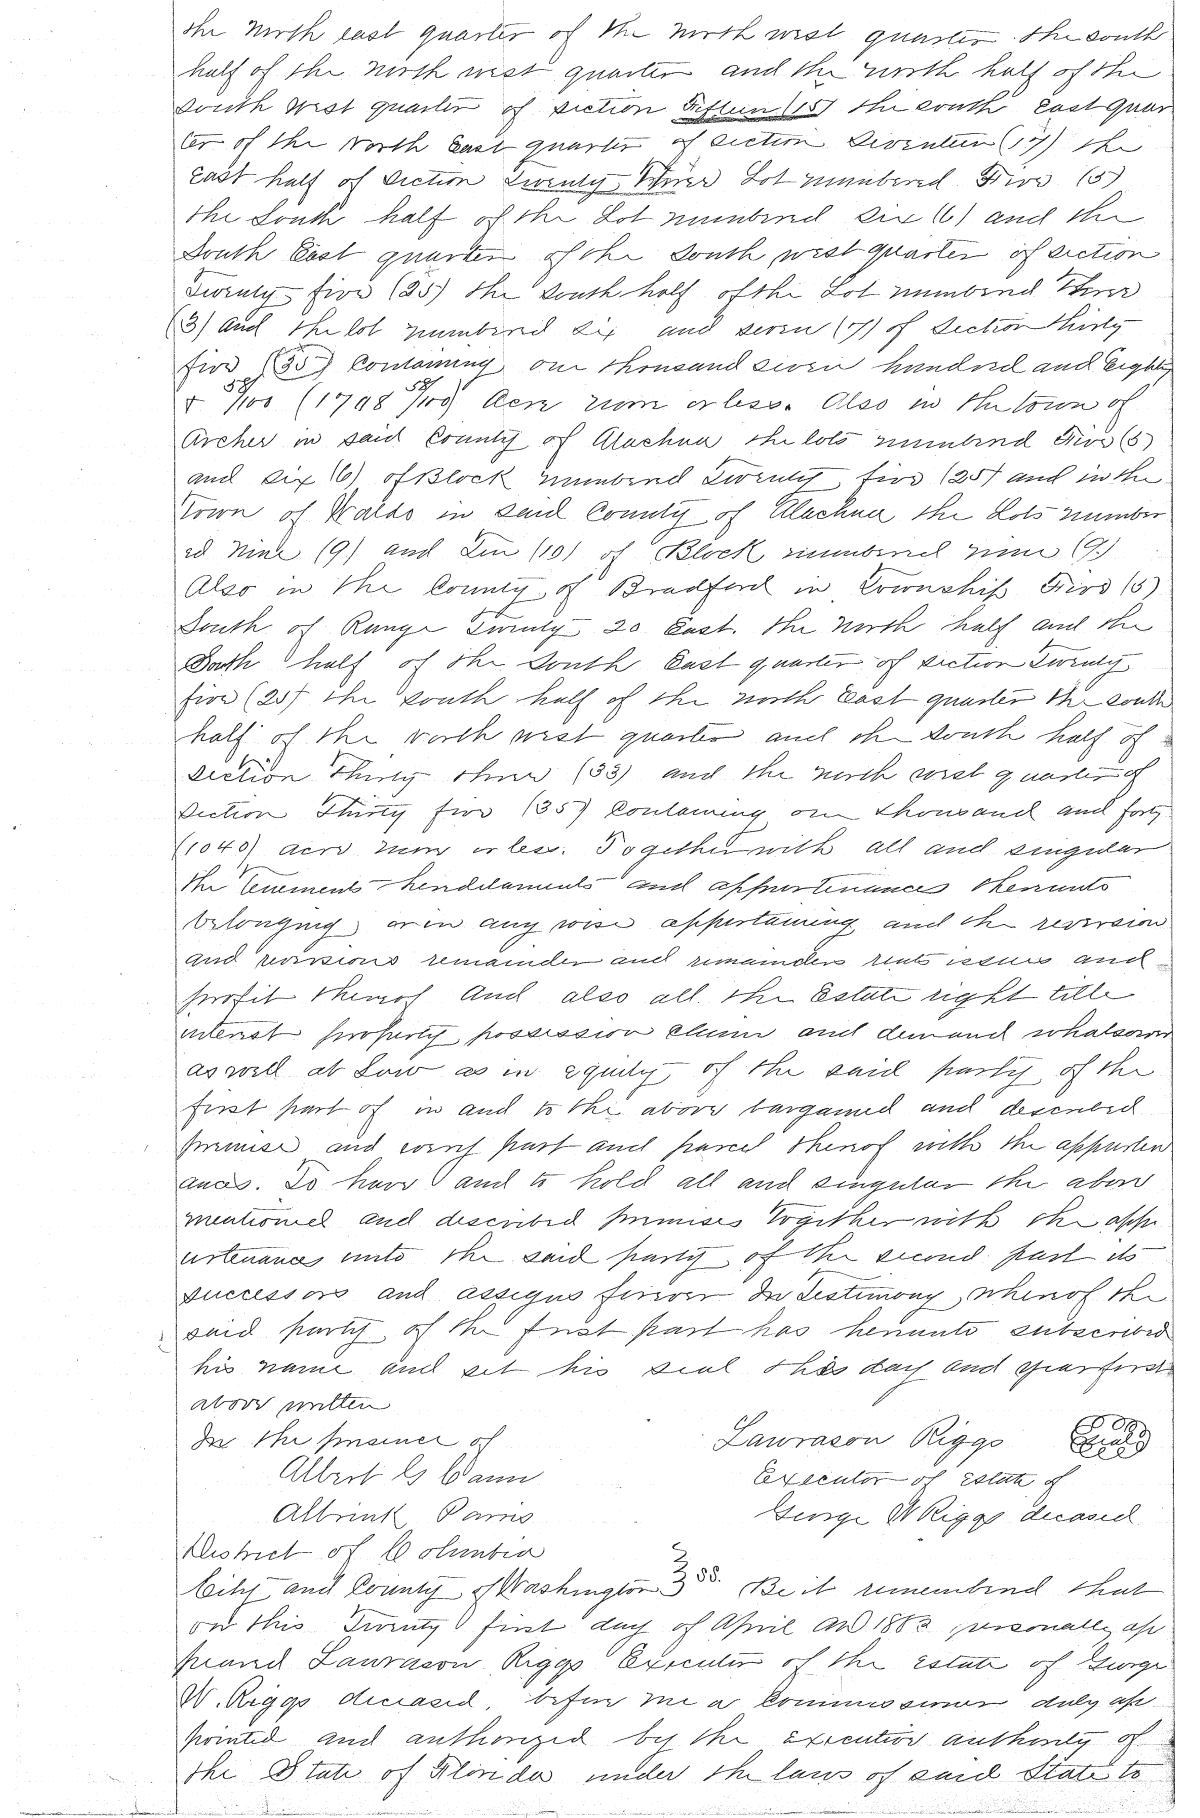 the North east quarter of the North west quarter the south
half of the North west quarter and the north half of the
South West quarter of Section Fifteen (15) the south East quar
ter of the North East quarter of Section Seventeen (17) the
East half of Section Twenty Three Lot numbered Five (5)
the South half of the Lot numbered Six (6) and the
South East quarter of the South west quarter of section
Twenty five (25) the South half of the Lot numbered Three
(3) and the lot numbered six and seven (7) of Section Thirty
five (35) Containing one thousand seven hundred and Eighty
+ 58/100 (1798 58/100) Acre more or less. Also in the town of
Archer in said County of Alachua the lots numbered Five (5)
and six (6) of Block numbered Twenty five (25) and in the
Town of Waldo in said County of Alachua the Lots number
ed Nine (9) and Ten (10) of Block numbered nine (9.)
Also in the County of Bradford in Township Five (5)
South of Range Twenty 20 East. The North half and the
South half of the South East quarter of section Twenty
five (25) the south half of the north East quarter the south
half of the north west quarter and the South half of
Section Thirty three (33) and the north west quarter of
Section Thirty five (35) Containing one thousand and forty
(1040) acre more or less. Together with all and singular
the tenements hereditaments and appurtenances thereunto
belonging or in any wise appertaining and the reversion
and reversions remainder and remainders rents issues and
profit thereof And also all the Estate right title
interest property possession claim and demand whatsoever
as well at Law as in equity of the said party of the
first part of in and to the above bargained and described
premise and every part and parcel thereof with the appurten
ances. To have and to hold all and singular the above
mentioned and described premises together with the app
urtenances unto the said party of the second part its
successors and assigns forever In Testimony whereof the
said party of the first part has hereunto subscribed
his name and set his seal this day and year first
above written
In the presence of Lawrason Riggs Seal
Albert G Cann Executor of Estate of
George W Riggs deceased
District of Columbia
City and County of Washington } ss. Be it remembered that
on this Twenty first day of April AD 1883 personally ap
peared Lawrason Riggs Executor of the Estate of George
W. Riggs deceased, before me a Commissioner duly ap
pointed and authorized by the Executive authority of
the State of Florida under the laws of said State to